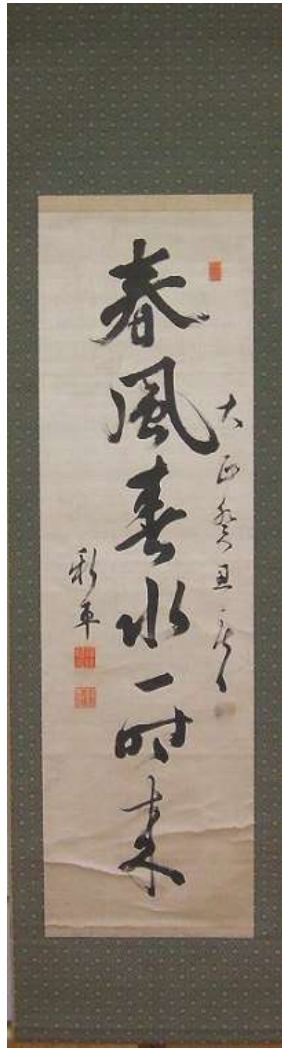 大正癸丑
春風春水一時来
彩平